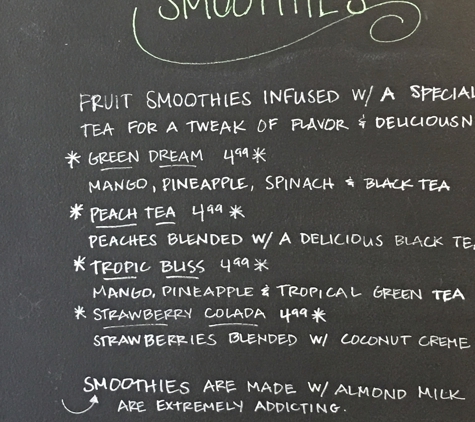 SMOOTHIES
FRUIT SMOOTHIES INFUSED W/ A SPECIAL
TEA FOR A TWEAK OF FLAVOR & DELICIOUSN
* GREEN DREAM 4.99 *
MANGO, PINEAPPLE, SPINACH & BLACK TEA
* PEACH TEA 4.99 *
PEACHES BLENDED W/ A DELICIOUS BLACK TE
* TROPIC BLISS 4.99 *
MANGO, PINEAPPLE & TROPICAL GREEN TEA
* STRAWBERRY COLADA 4.99 *
STRAWBERRIES BLENDED W/ COCONUT CREME
SMOOTHIES ARE MADE W/ ALMOND MILK
ARE EXTREMELY ADDICTING.